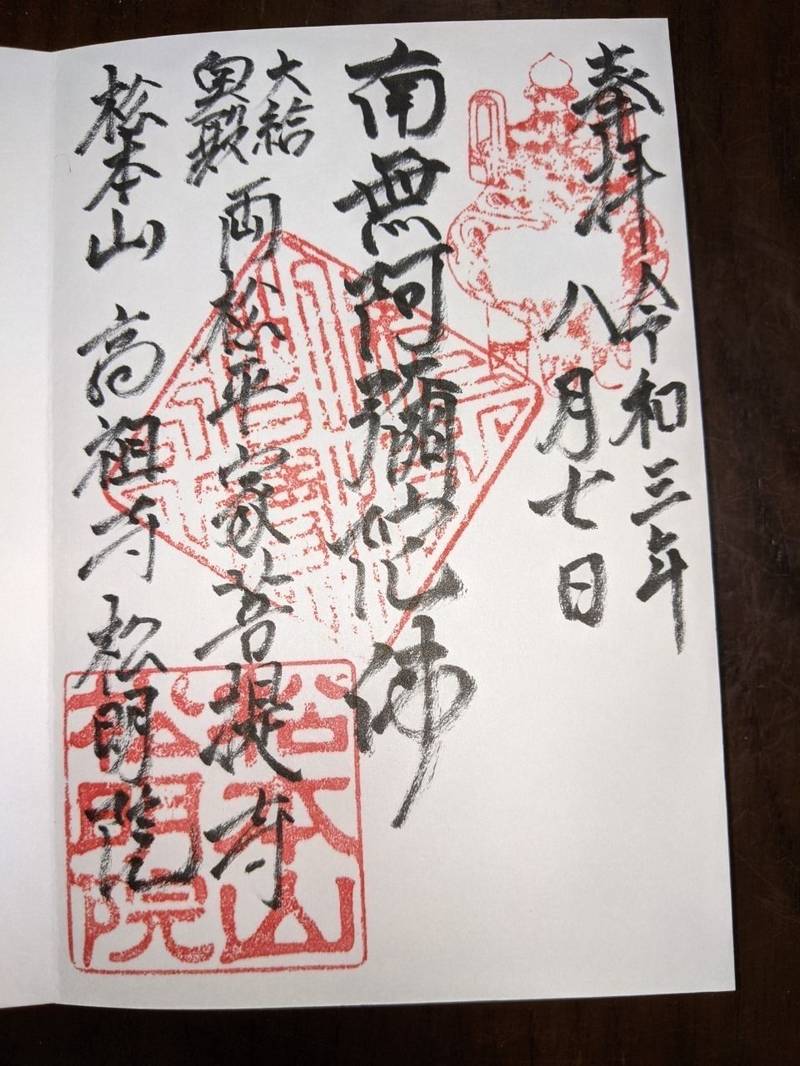 奉拝 令和三年
八月七日
南無阿彌陀佛
大給
奥殿
両松平家菩提寺
松本山 高祖寺 松明院
松本山
松明院